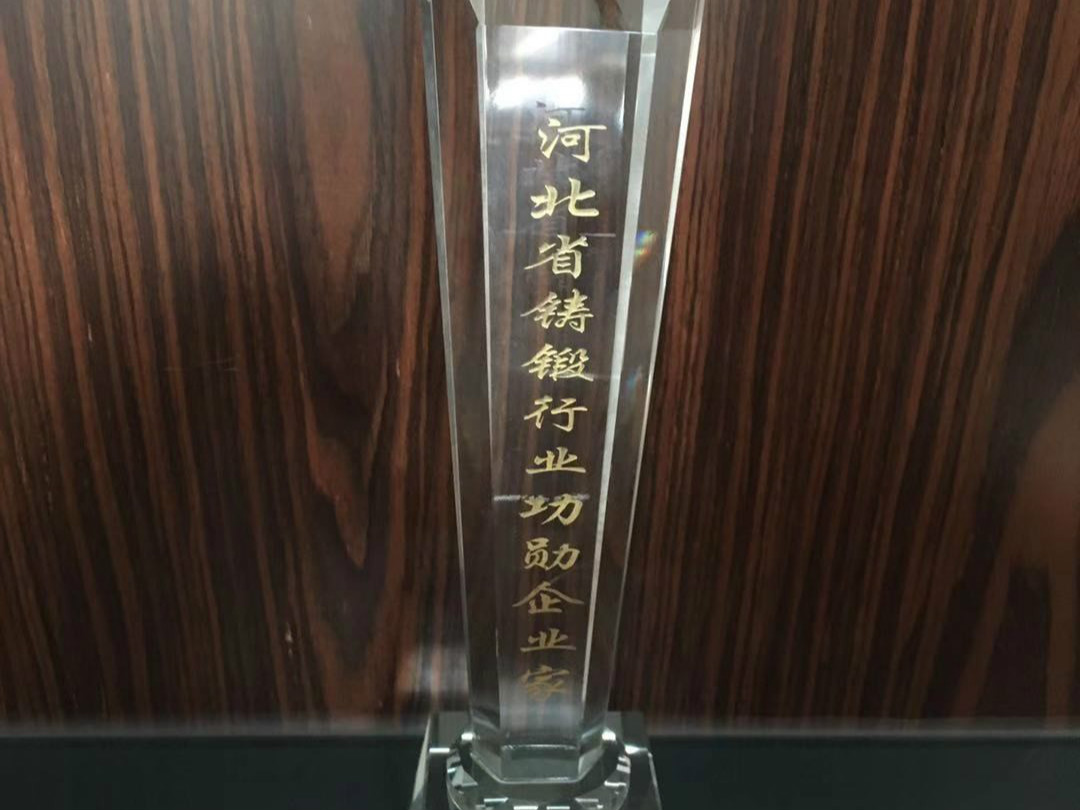 河北省铸锻行业功勋企业家